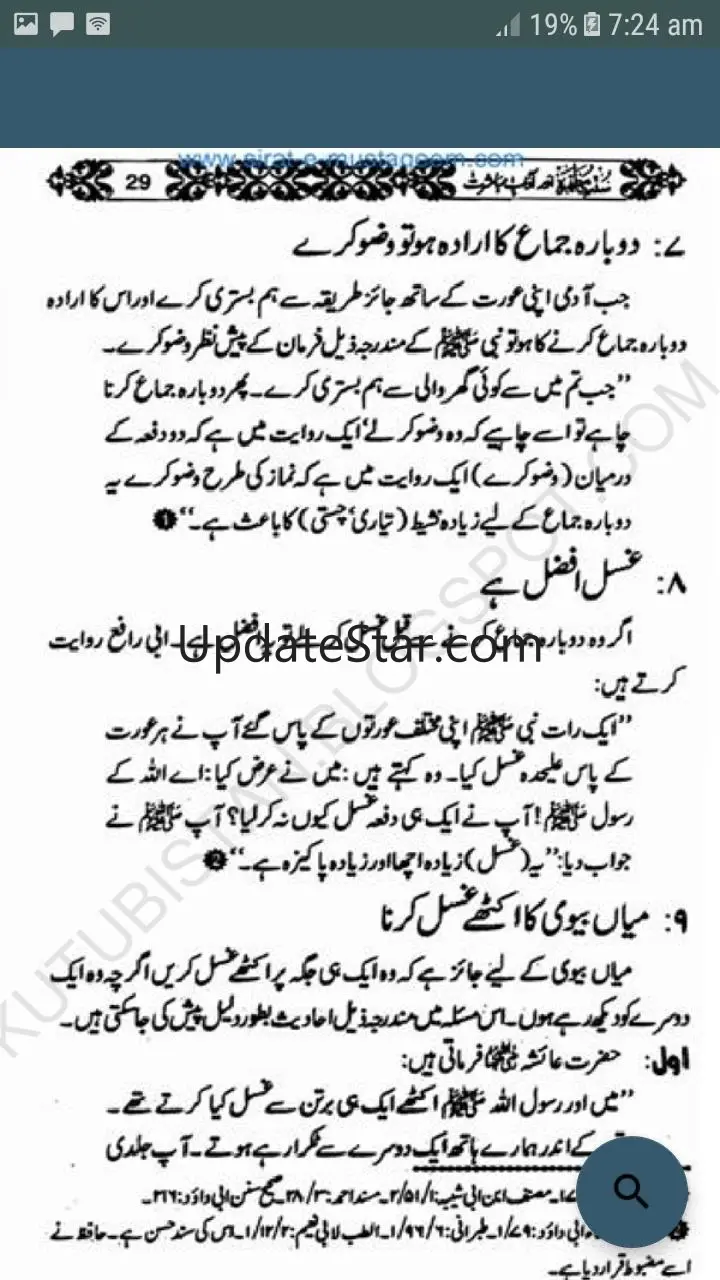 19% 7:24 am
www.sirat-e-mustaqeem.com
29 اور آداب مباشرت
۷: دوبارہ جماع کا ارادہ ہو تو وضو کرے
جب آدمی اپنی عورت کے ساتھ جائز طریقہ سے ہم بستری کرے اور اس کا ارادہ
دوبارہ جماع کرنے کا ہو تو نبی ﷺ کے مندرجہ ذیل فرمان کے پیش نظر وضو کرے۔
”جب تم میں سے کوئی گھر والی سے ہم بستری کرے۔ پھر دوبارہ جماع کرنا
چاہے تو اسے چاہیے کہ وہ وضو کر لے‘ ایک روایت میں ہے کہ دو دفعہ کے
درمیان (وضو کرے) ایک روایت میں ہے کہ نماز کی طرح وضو کرے یہ
دوبارہ جماع کے لیے زیادہ نشیط (تیاری‘ چستی) کا باعث ہے۔“ ❶
۸: غسل افضل ہے
اگر وہ دوبارہ جماع کرنے سے قبل غسل کر لے تو یہ افضل ہے۔ ابی رافع روایت
UpdateStar.com
کرتے ہیں:
”ایک رات نبی ﷺ اپنی مختلف عورتوں کے پاس گئے آپ نے ہر عورت
کے پاس علیحدہ غسل کیا۔ وہ کہتے ہیں: میں نے عرض کیا: اے اللہ کے
رسول ﷺ! آپ نے ایک ہی دفعہ غسل کیوں نہ کر لیا؟ آپ ﷺ نے
جواب دیا: ”یہ (غسل) زیادہ اچھا اور زیادہ پاکیزہ ہے۔“ ❷
۹: میاں بیوی کا اکٹھے غسل کرنا
میاں بیوی کے لیے جائز ہے کہ وہ ایک ہی جگہ پر اکٹھے غسل کریں اگرچہ وہ ایک
دوسرے کو دیکھ رہے ہوں۔ اس مسئلہ میں مندرجہ ذیل احادیث بطور دلیل پیش کی جا سکتی ہیں۔
اول: حضرت عائشہ رضی اللہ عنہا فرماتی ہیں:
”میں اور رسول اللہ ﷺ اکٹھے ایک ہی برتن سے غسل کیا کرتے تھے۔
کے اندر ہمارے ہاتھ ایک دوسرے سے ٹکرا رہے ہوتے۔ آپ جلدی
مصنف ابن ابی شیبہ: ۱/۵۱/۲۔ مسند احمد: ۳/۲۸۔ صحیح سنن ابی داؤد: ۲۱۶۔
ابی داؤد: ۱/۷۹۔ طبرانی: ۶/۹۶/۱۔ الطب لابی نعیم: ۲/۱۲/۱۔ اس کی سند حسن ہے۔ حافظ نے
اسے مضبوط قرار دیا ہے۔
KUTUBISTAN.BLOGSPOT.COM